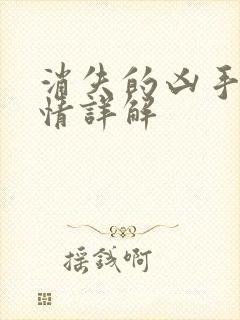 消失的凶手
情詳解
摇錢啊